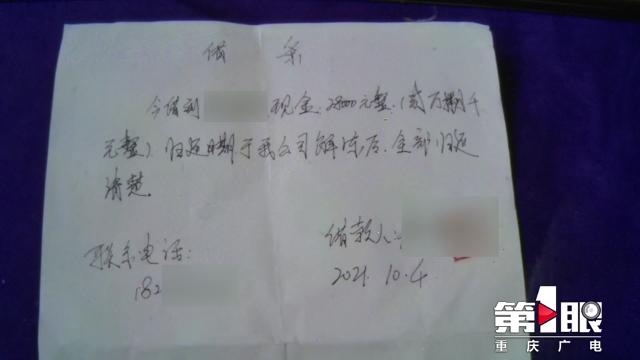 借 条
今借到 现金 28000元整.(贰万捌千
元整) 归还日期于我公司解冻后.全部归还
清楚.
借款人:
联系电话:
182
2021.10.4
第1眼
重庆广电